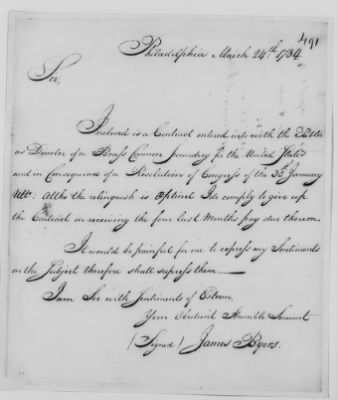 491
Philadelphia March 24th 1784
Sir.
Inclosed is a Contract entered into with the
as Director of a Brass Cannon foundery for the United States
and in Consequence of a Resolution of Congress of the 30 January
Ult: Altho the relinquish is optinel I do comply to give up
the Contract on receiving the four last Months pay due thereon.
It would be painful for me to express my Sentiments
on the Subject therefore shall supress them
I am Sir with Sentiments of Esteem
Your Obedient Humble Servant
(Signed) James Byers.